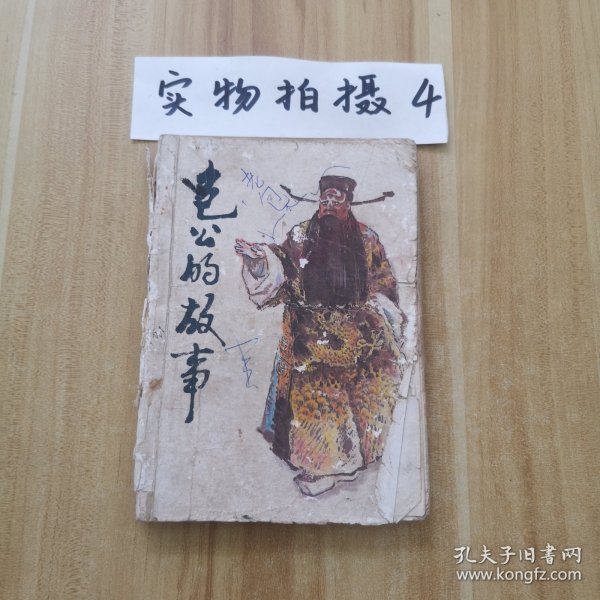 实物拍摄4
包公的故事
孔夫子旧书网
www.kongfz.com